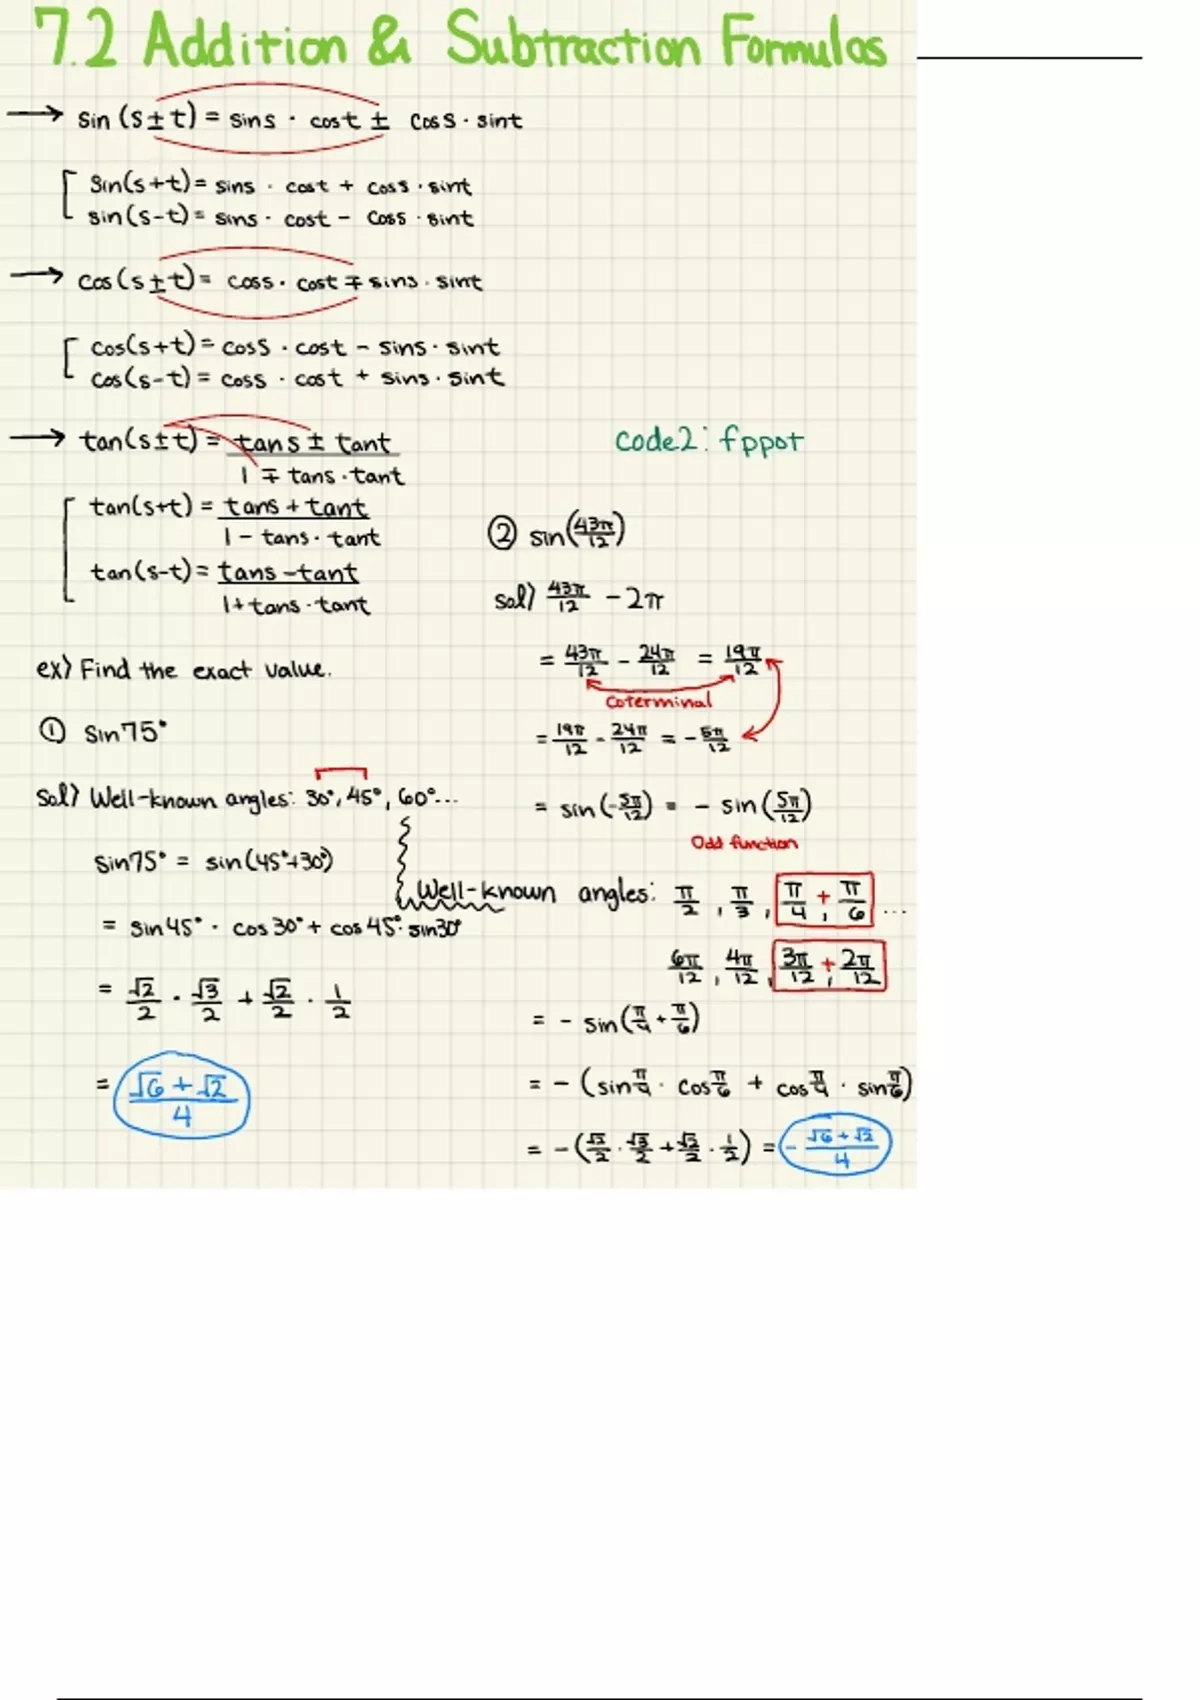 7.2 Addition & Subtraction Formulas
→ sin (s ± t) = sins · cost ± coss · sint
sin(s+t) = sins · cost + coss · sint
sin(s-t) = sins · cost - coss · sint
→ cos(s ± t) = coss · cost ∓ sins · sint
cos(s+t) = coss · cost - sins · sint
cos(s-t) = coss · cost + sins · sint
→ tan(s±t) = tans ± tant
1 ∓ tans · tant
tan(s+t) = tans + tant
1 - tans · tant
tan(s-t) = tans - tant
1 + tans · tant
ex) Find the exact value.
① sin75°
sol) Well-known angles: 30°, 45°, 60°...
sin75° = sin(45°+30°)
= sin45° · cos30° + cos45° · sin30°
= √2/2 · √3/2 + √2/2 · 1/2
= √6 + √2 / 4
code2: fppot
② sin(43π/12)
sol) 43π/12 - 2π
= 43π/12 - 24π/12 = 19π/12
coterminal
= 19π/12 - 24π/12 = - 5π/12
= sin(-5π/12) = - sin(5π/12)
Odd function
Well-known angles: π/2, π/3, π/4 + , π/6 ...
6π/12, 4π/12, 3π/12 + , 2π/12
= - sin(π/4 + π/6)
= - (sin π/4 · cos π/6 + cos π/4 · sin π/6)
= - (√2/2 · √3/2 + √2/2 · 1/2) = - √6 + √2 / 4